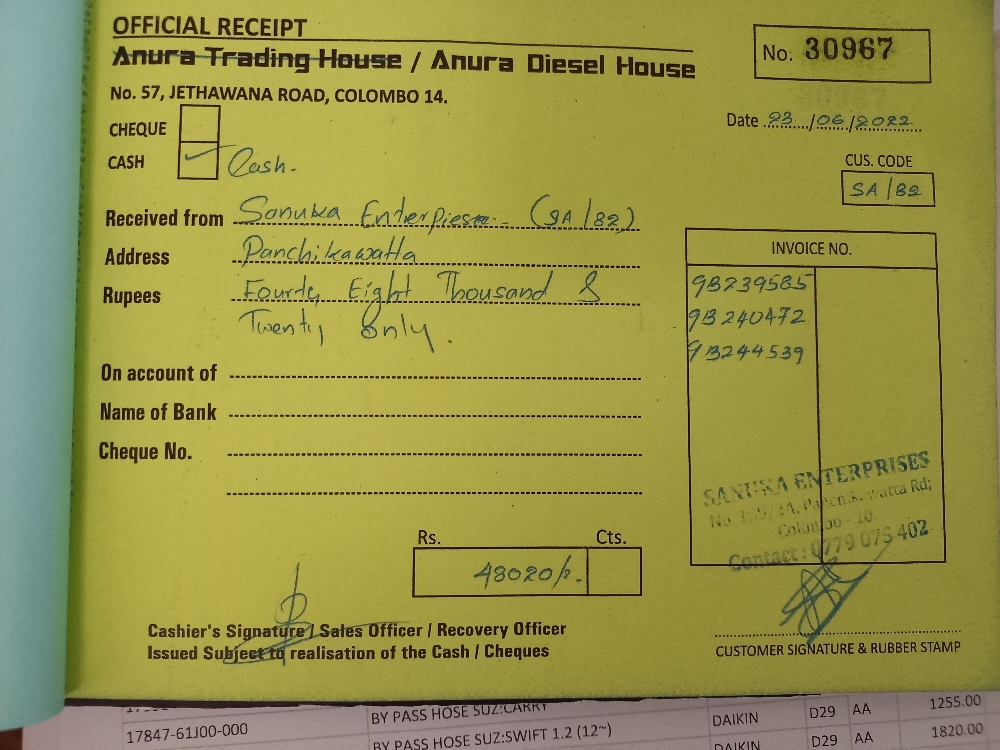 OFFICIAL RECEIPT
Anura Trading House / Anura Diesel House
No. 57, JETHAWANA ROAD, COLOMBO 14.
No. 30967
Date 23/06/2022
CHEQUE
CASH Cash.
CUS. CODE
SA/82
Received from Sanuka Enterpiese (SA/82)
Address Panchikawatta
Rupees Fourty Eight Thousand &
Twenty Only.
INVOICE NO.
9B239585
9B240472
9B244539
On account of
Name of Bank
Cheque No.
SANUKA ENTERPRISES
No Panchikawatta Rd;
Colombo - 10.
Contact : 0779 075 402
Rs. Cts.
48020/-
Cashier's Signature / Sales Officer / Recovery Officer
Issued Subject to realisation of the Cash / Cheques
CUSTOMER SIGNATURE & RUBBER STAMP
BY PASS HOSE SUZ:CARRY D29 AA 1255.00
17847-61J00-000 BY PASS HOSE SUZ:SWIFT 1.2 (12~) DAIKIN D29 AA 1820.00
DAIKIN